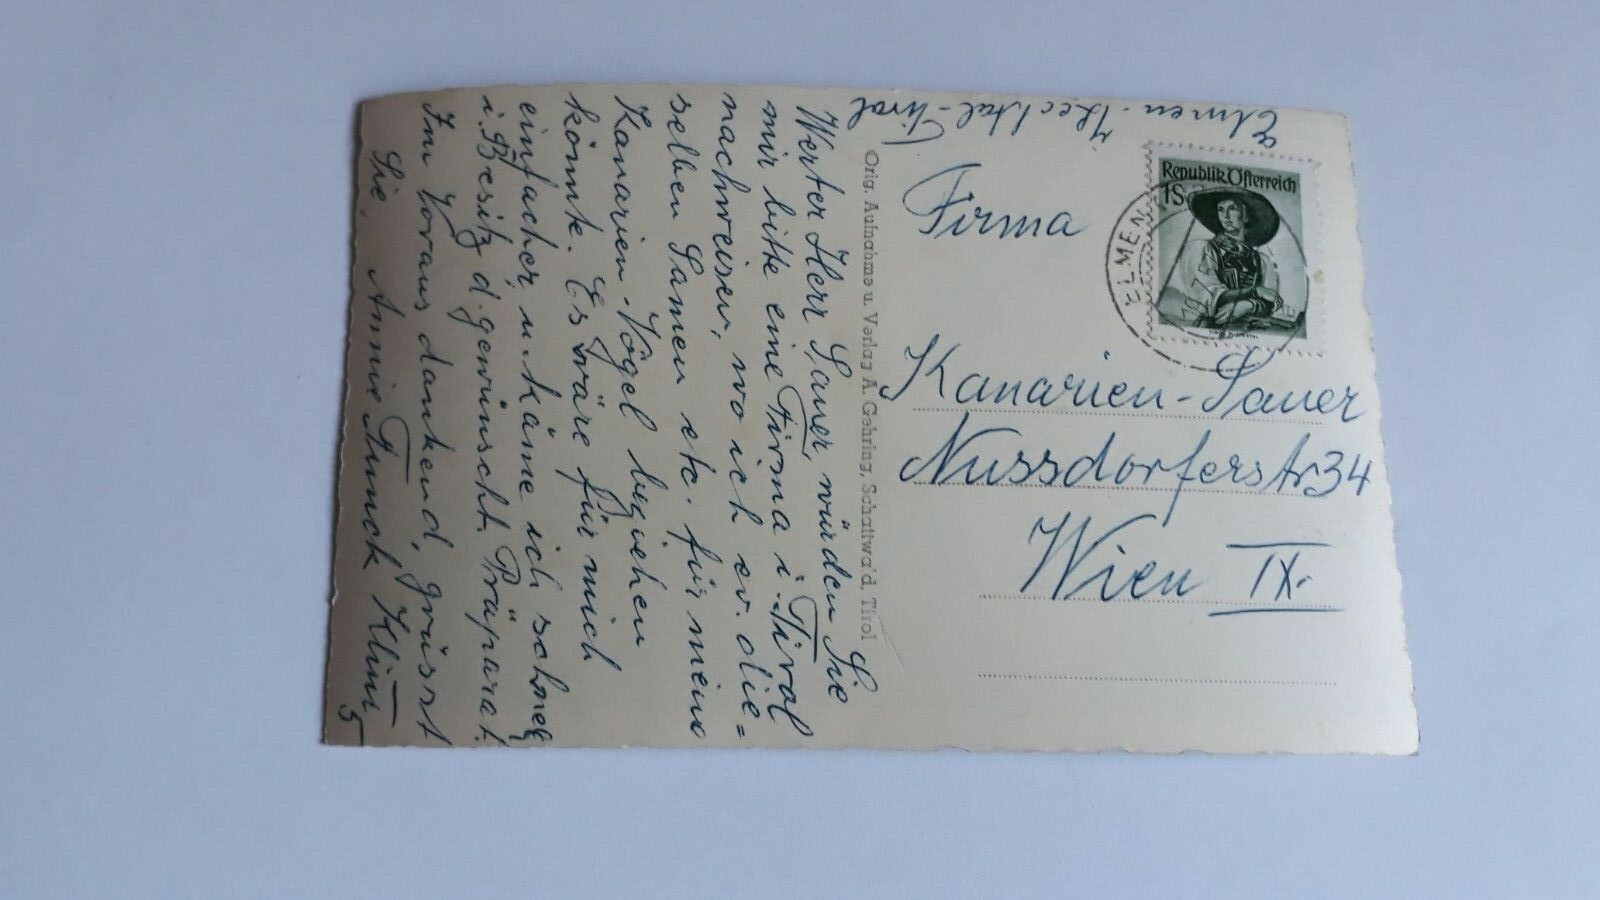 Werter Herr Sauer, würden Sie
mir bitte eine Firma i. Tirol
nachweisen, wo ich ev. die=
selben Samen etc. für meine
Kanarien-Vögel beziehen
könnte. Es wäre für mich
einfacher u. käme ich schnell
i. Besitz d. gewünscht. Präparat.
Im Voraus dankend, grüsst
Sie, Annie Funck
Orig. Aufnahme u. Verlag A. Gehring, Schattwa'd, Tirol
Elmen - Lechtal - Tirol
Republik Österreich
1S
ELMEN
Firma
Kanarien-Sauer
Nussdorferstr 34
Wien IX.